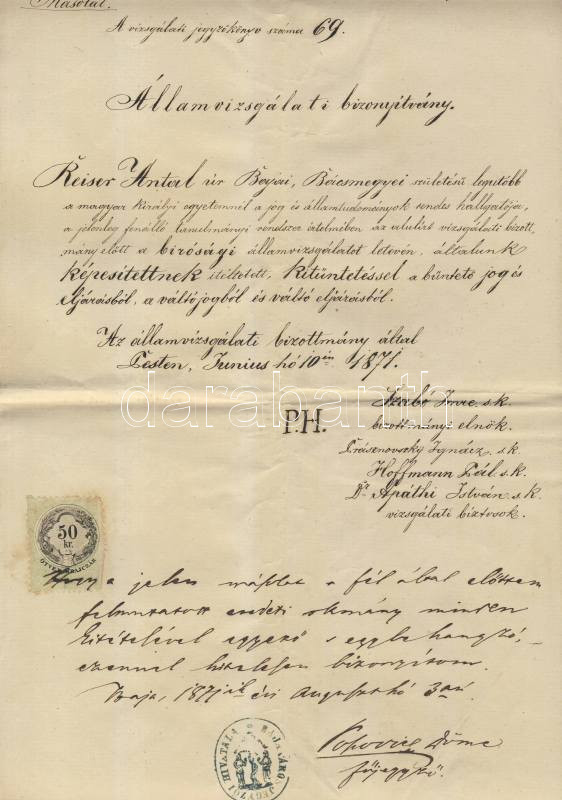 Másolat.
A vizsgálati jegyzőkönyv száma 69.
Államvizsgálati bizonyítvány.
Keiser Antal úr Bajai, Bácsmegyei születésű legutóbb
a magyar királyi egyetemnél a jog és államtudományok rendes hallgatója,
a jelenleg fenálló tanulmányi rendszer értelmében az alulirt vizsgálati bizott,
mány előtt a birósági államvizsgálatot letevén, általunk
képesitettnek itéltetett, kitüntetéssel a büntető jog és
eljárásból, a váltójogból és váltó eljárásból.
Az államvizsgálati bizottmány által
Pesten, Junius hó 10 én 1871.
P.H.
Szabó Imre s.k.
bizottmányi elnök.
Ignácz s.k.
Hoffmann Pál s.k.
Dr Apáthi István s.k.
vizsgálati biztosok.
50
kr.
Hogy a jelen másolat a fél által előttem
felmutatott eredeti okmány minden
kitételével egyező s egybehangzó,
ezennel hitelesen bizonyítom.
Baja, 1871ik évi Augusztus hó 3án
Popovics Döme
főjegyző.
darabanth